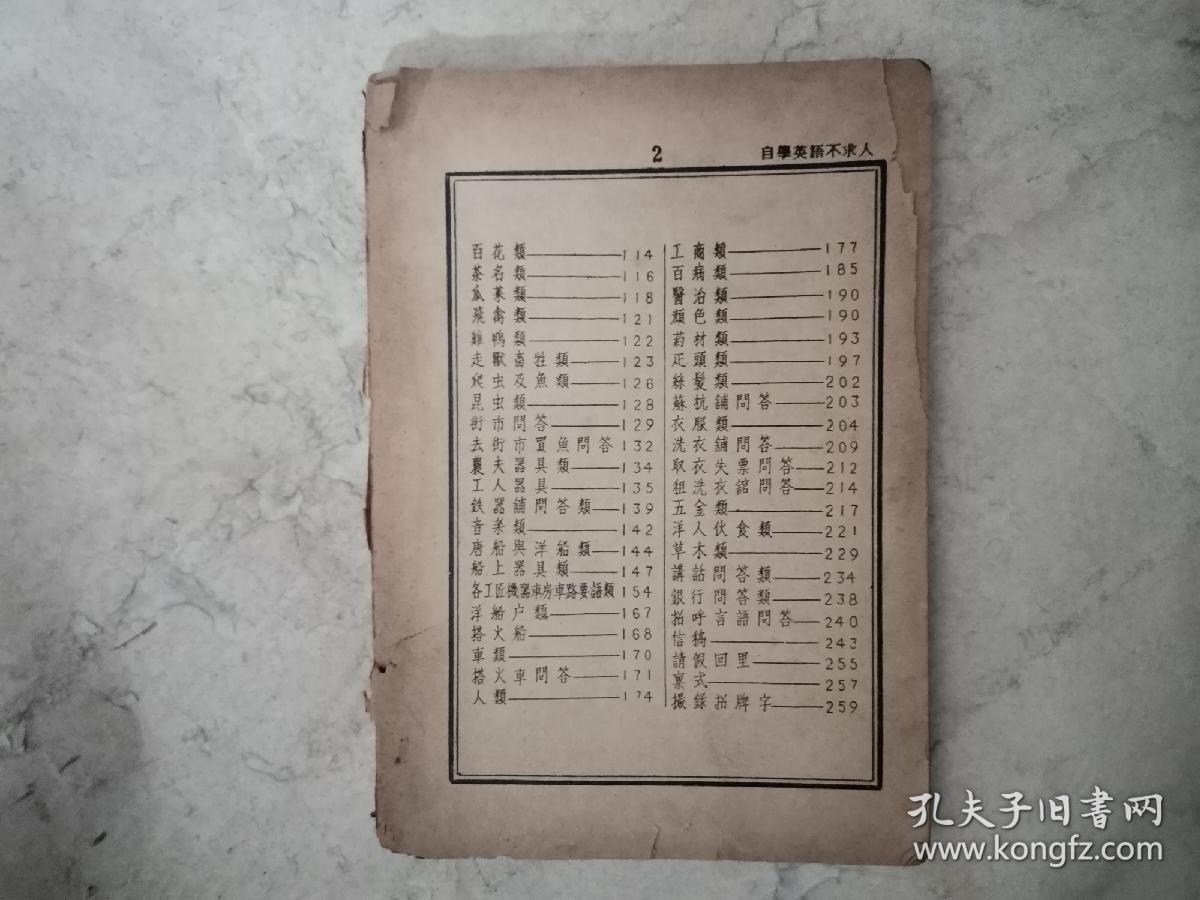 2
自學英語不求人
百花類——114
茶名類——116
瓜菜類——118
飛禽類——121
雞鴨類——122
走獸畜牲類——123
爬虫及魚類——126
昆虫類——128
街市問答——129
去街市買魚問答132
農夫器具類——134
工人器具——135
鉄器舖問答類——139
音楽類——142
唐船與洋船類——144
船上器具類——147
各工匠機器車房車路要語類154
洋船户類——167
搭火船——168
車類——170
搭火車問答——171
人類——174
工商類——177
百病類——185
醫治類——190
顏色類——190
葯材類——193
疋頭類——197
絲髮類——202
蘇杭舖問答——203
衣服類——204
洗衣舖問答——209
取衣失票問答——212
租洗衣舘問答——214
五金類——217
洋人伙食類——221
草木類——229
講話問答類——234
銀行問答類——238
招呼言語問答——240
信稿——243
請假回里——255
禀式——257
撮錄招牌字——259
孔夫子旧书网
www.kongfz.com